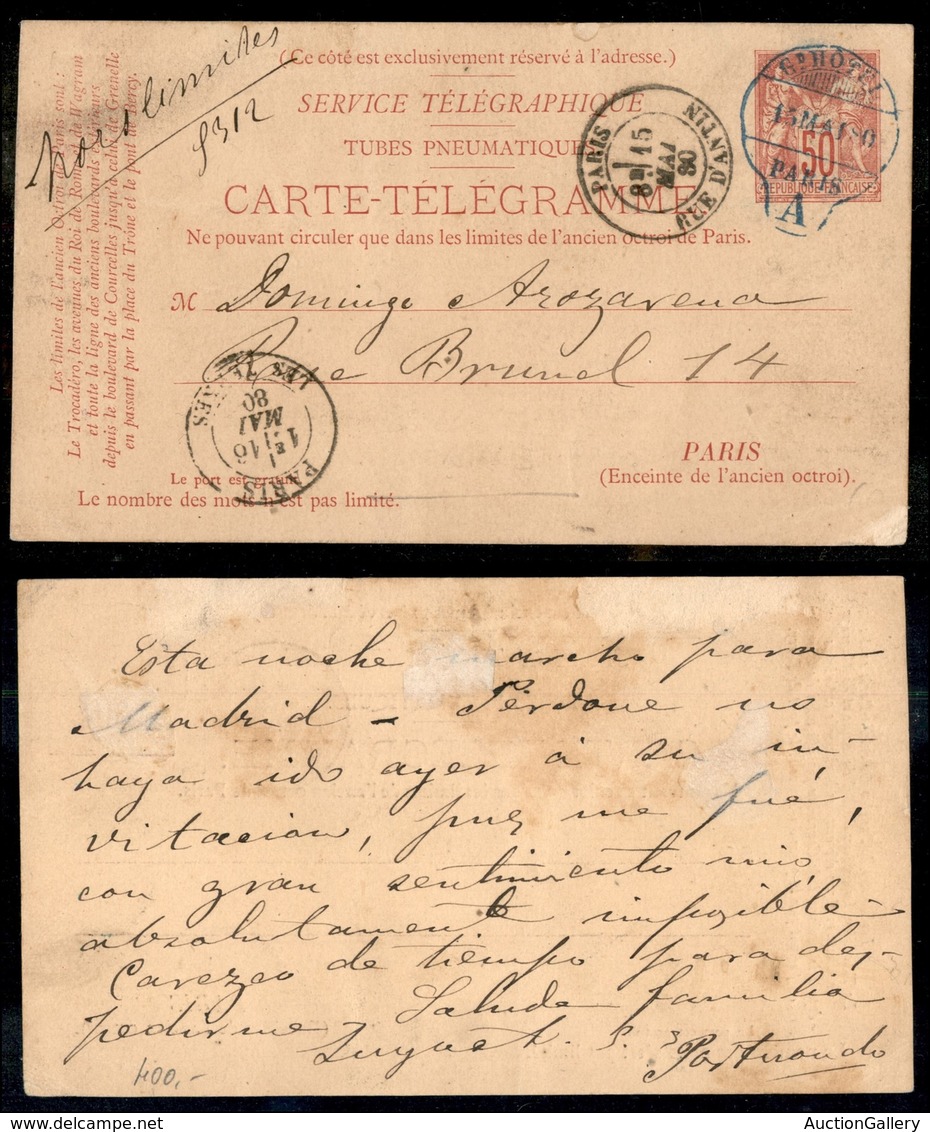 hors limites
8312
(Ce côté est exclusivement réservé à l'adresse.)
SERVICE TÉLÉGRAPHIQUE
TUBES PNEUMATIQUES
CARTE-TÉLÉGRAMME
Ne pouvant circuler que dans les limites de l'ancien octroi de Paris.
Les limites de l'ancien Octroi de Paris sont :
Le Trocadéro, les avenues du Roi de Rome et de Wagram
et toute la ligne des anciens boulevards extérieurs
depuis le boulevard de Courcelles jusqu'à celui de Grenelle
en passant par la place du Trône et le pont de Bercy.
PARIS
RUE D'ANTIN
15
80
Gd HOTEL
15 MAI 80
PARIS
A
50
REPUBLIQUE FRANÇAISE
M Domingo Arozarena
Rue Brunel 14
PARIS
LES TERNES
16
MAI
80
PARIS
(Enceinte de l'ancien octroi).
Le port est gratuit.
Le nombre des mots n'est pas limité.
Esta noche marcho para
Madrid - Perdone no
haya ido ayer á su in-
vitacion, pues me fué,
con gran sentimiento mio
absolutamente imposible-
Carezco de tiempo para des-
pedirme, Salude familia
S. S.
Portuondo
400,-
AuctionGallery